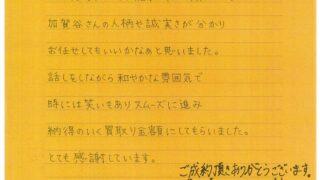 加賀谷さんの人柄や誠実さが分かり
お任せしてもいいかなぁと思いました。
話しをしながら和やかな雰囲気で
時には笑いもありスムーズに進み
納得のいく買取り金額にしてもらいました。
とても感謝しています。
ご成約頂きありがとうございます。